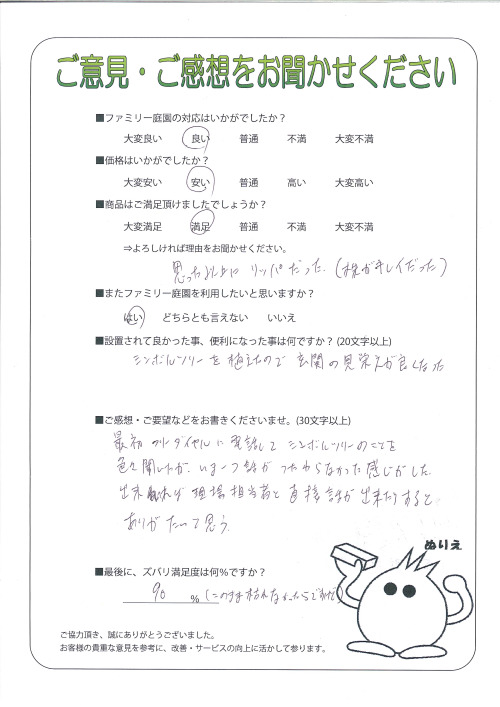 ご意見・ご感想をお聞かせください
■ファミリー庭園の対応はいかがでしたか？
大変良い 良い 普通 不満 大変不満
■価格はいかがでしたか？
大変安い 安い 普通 高い 大変高い
■商品はご満足頂けましたでしょうか？
大変満足 満足 普通 不満 大変不満
⇒よろしければ理由をお聞かせください。
思った以上に リッパだった.（枝がキレイだった）
■またファミリー庭園を利用したいと思いますか？
はい どちらとも言えない いいえ
■設置されて良かった事、便利になった事は何ですか？(20文字以上)
シンボルツリーを植えたので 玄関の見栄えが良くなった
■ご感想・ご要望などをお書きくださいませ。(30文字以上)
最初 フリーダイヤルに電話して シンボルツリーのことを
色々聞いたが、いま一つ話が つたわらなかった感じがした.
出来れば 現場担当者と 直接話が出来たりすると
ありがたいって思う.
ぬりえ
■最後に、ズバリ満足度は何％ですか？
90 ％ (このまま枯れなかったら
ご協力頂き、誠にありがとうございました。
お客様の貴重な意見を参考に、改善・サービスの向上に活かして参ります。